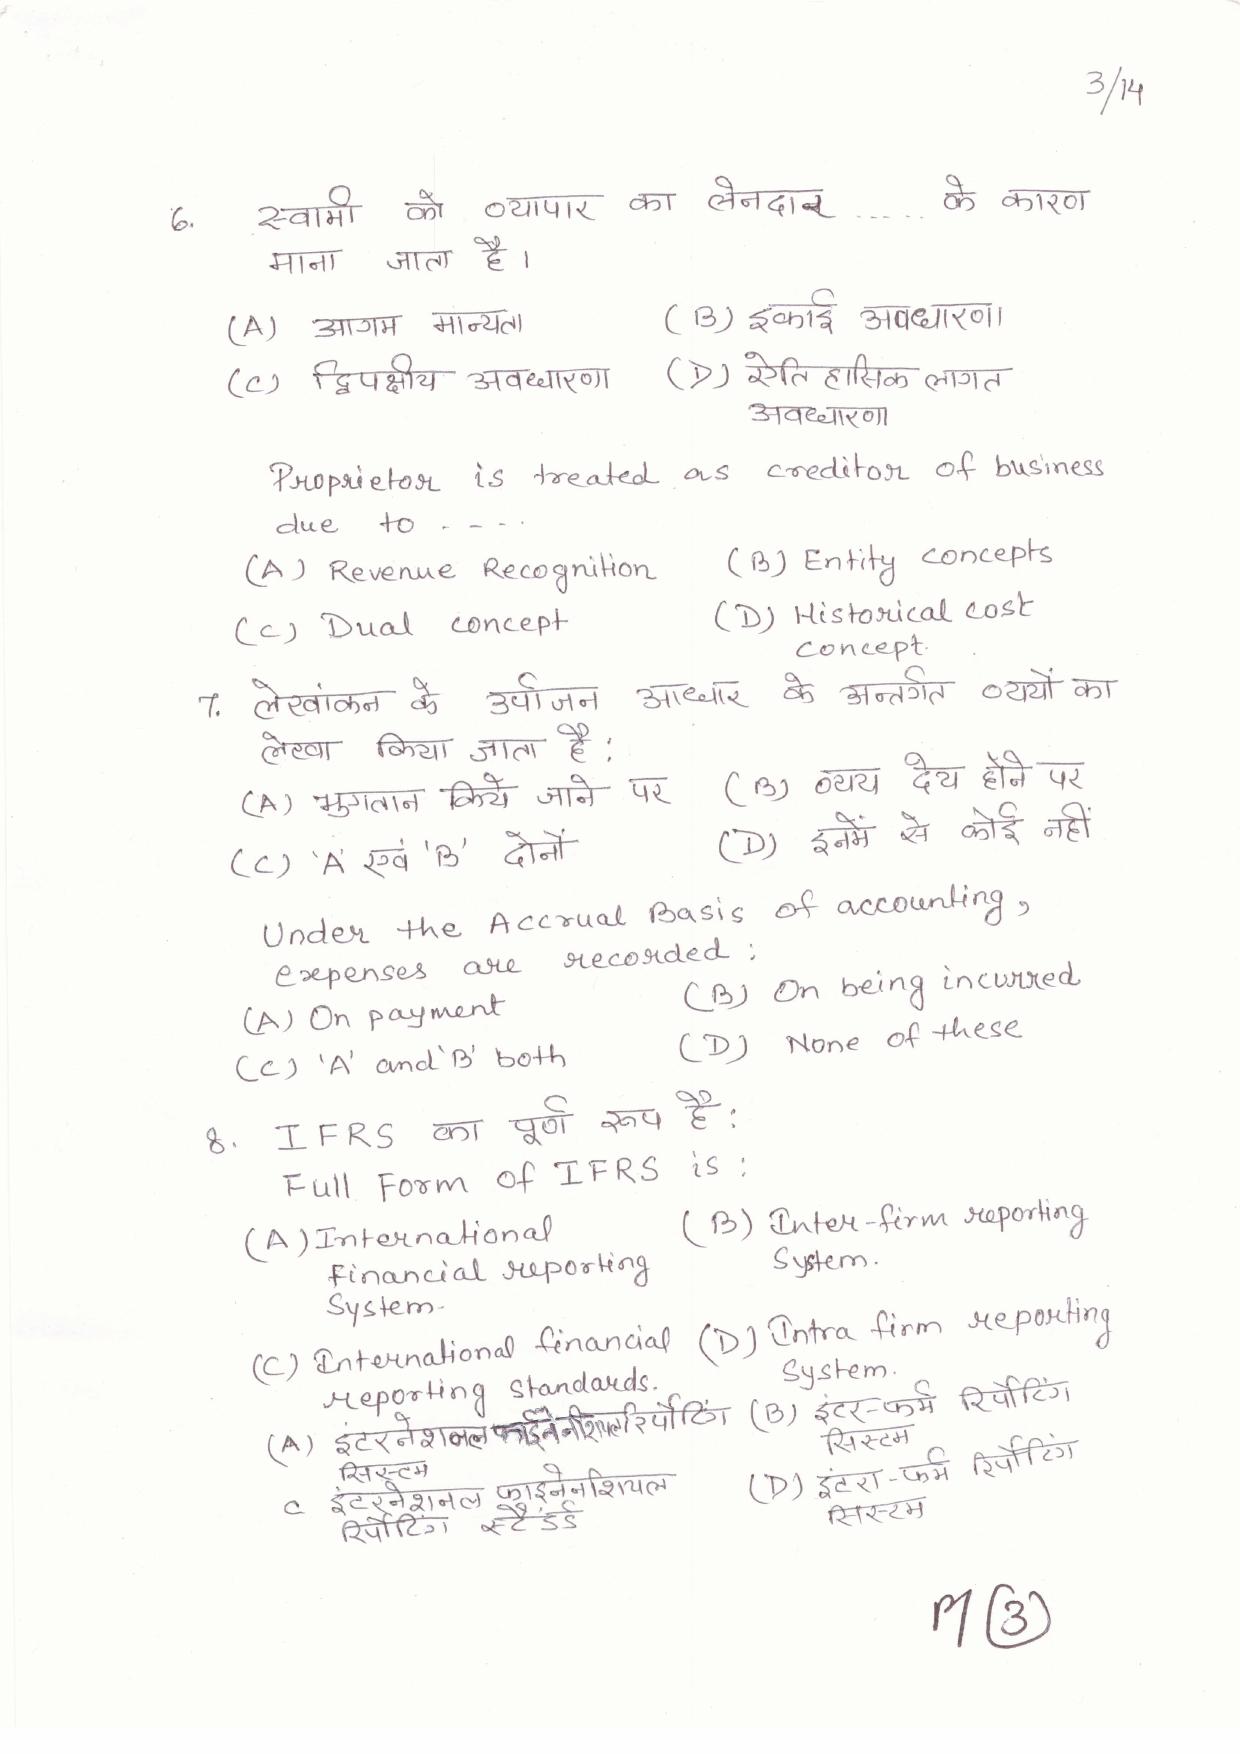 3/14
6. स्वामी को व्यापार का लेनदार ..... के कारण
माना जाता है।
(A) आगम मान्यता (B) इकाई अवधारणा
(C) द्विपक्षीय अवधारणा (D) ऐतिहासिक लागत
अवधारणा
Proprietor is treated as creditor of business
due to - - - -
(A) Revenue Recognition (B) Entity concepts
(C) Dual concept (D) Historical cost
concept.
7. लेखांकन के उर्पाजन आधार के अन्तर्गत व्ययों का
लेखा किया जाता है :
(A) भुगतान किये जाने पर (B) व्यय देय होने पर
(C) 'A' एवं 'B' दोनों (D) इनमें से कोई नहीं
Under the Accrual Basis of accounting,
expenses are recorded :
(A) On payment (B) On being incurred
(C) 'A' and 'B' both (D) None of these
8. IFRS का पूर्ण रूप है :
Full Form of IFRS is :
(A) International (B) Inter-firm reporting
Financial reporting System.
System.
(C) International financial (D) Intra firm reporting
reporting standards. System.
(A) इंटरनेशनल फाईनेनशियल रिर्पोटिंग (B) इंटर-फर्म रिर्पोटिंग
सिस्टम सिस्टम
C इंटरनेशनल फ़ाइनेनशियल (D) इंटरा-फर्म रिर्पोटिंग
रिर्पोटिंग स्टैंडर्ड सिस्टम
M (3)